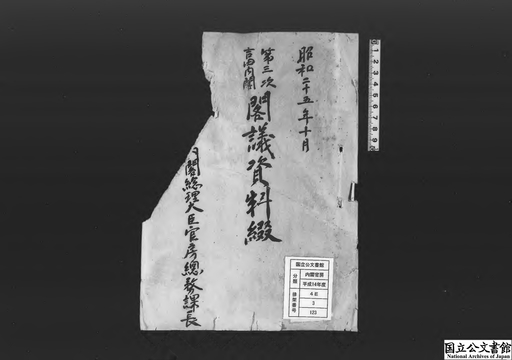 昭和二十五年十月
第三次
吉田内閣
閣議資料綴
内閣総理大臣官房總務課長
国立公文書館
分類
内閣官房
平成14年度
排架番号
4E
3
123
0 1 2 3 4 5 6 7 8 9
国立公文書館
National Archives of Japan